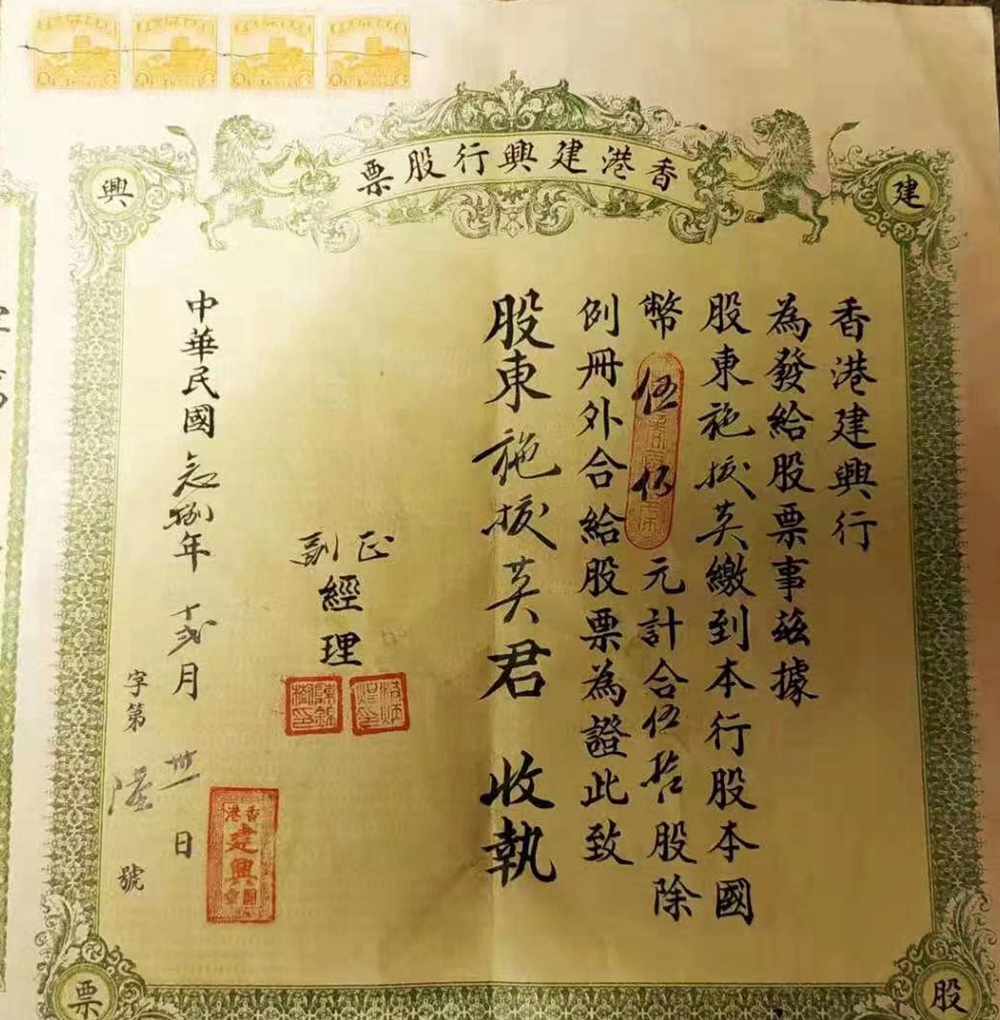 香港建興行股票
建
興
香港建興行
為發給股票事茲據
股東施拔英繳到本行股本國
幣伍仟元計合伍拾股除
例冊外合給股票為證此致
股東施拔英君 收執
正
副
經理
中華民國 年十弍月卅一日
字第 號
香港
建興
股
票